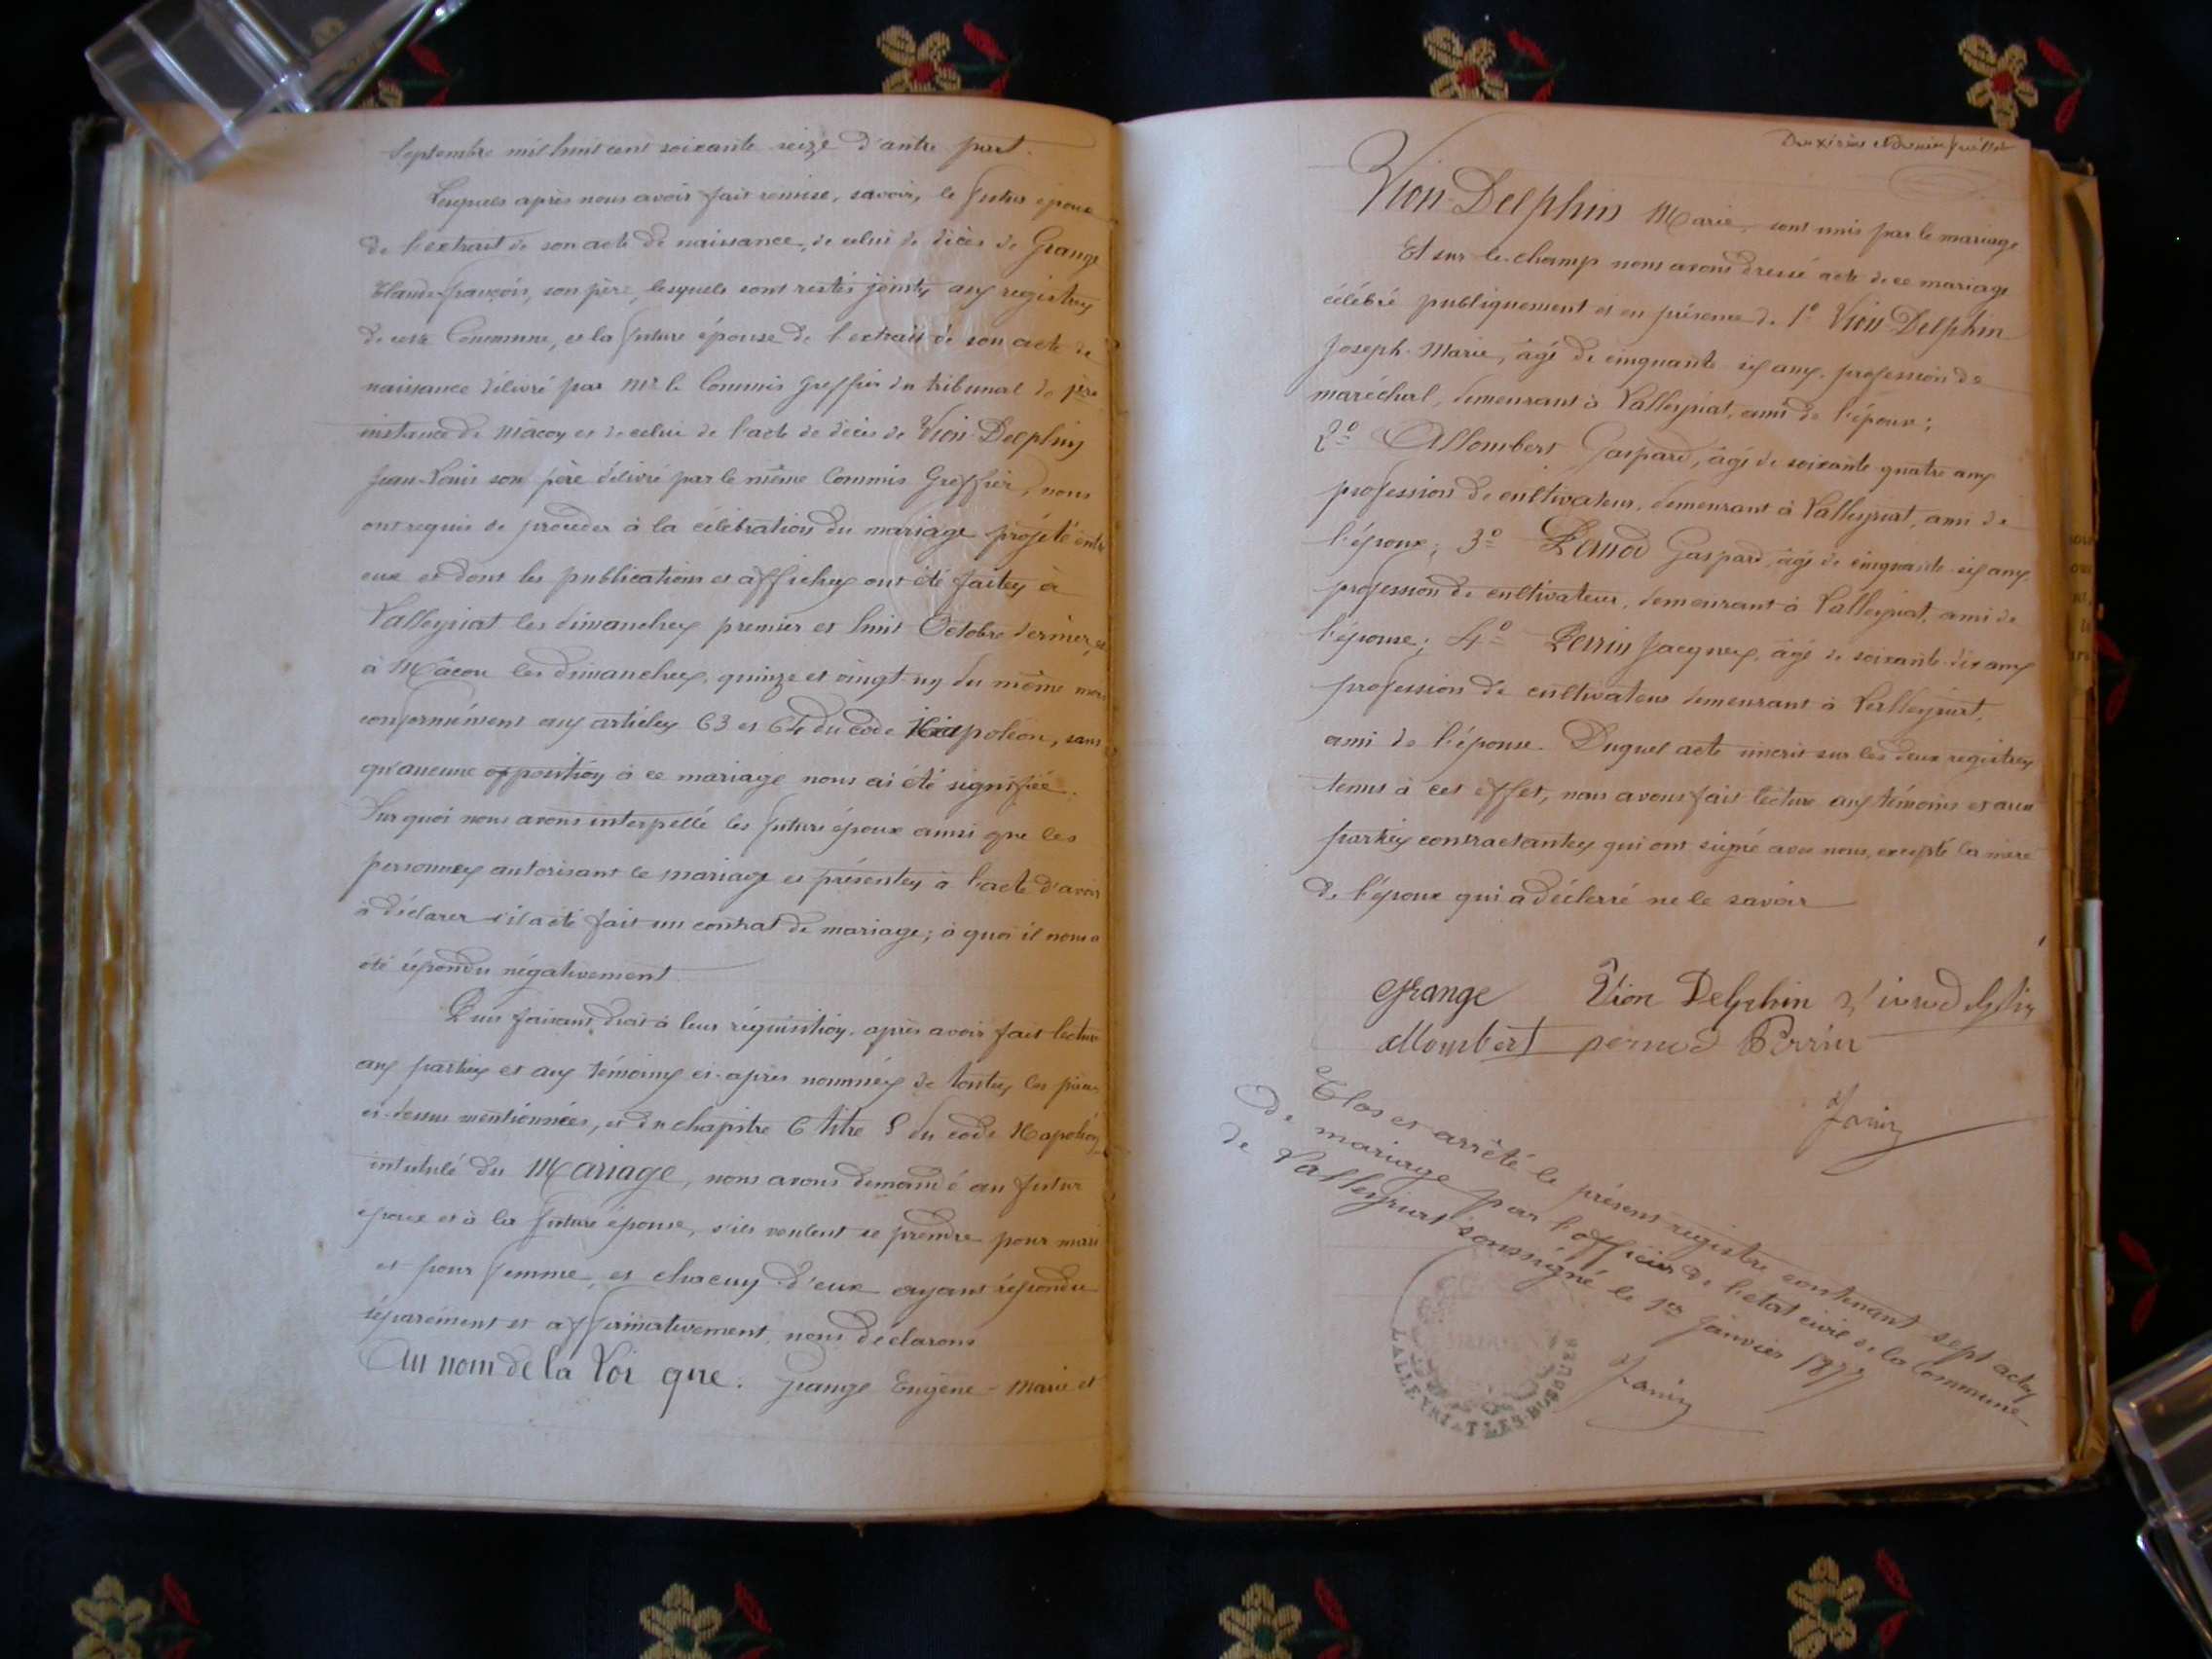 Septembre mil huit cent soixante seize d'autre part.
Lesquels après nous avoir fait remise, savoir, le futur époux
de l'extrait de son acte de naissance, de celui de décès de Grange
Claude-françois, son père, lesquels sont restés joints aux registres
de cette Commune, et la future épouse de l'extrait de son acte de
naissance délivré par Mr le Commis Greffier du tribunal de 1ère
instance de Mâcon et de celui de l'acte de décès de Vion-Delphin
Jean-Louis son père délivré par le même Commis Greffier, nous
ont requis de procéder à la célébration du mariage projeté entre
eux et dont les publications et affiches ont été faites à
Valleyriat les dimanches premier et huit Octobre dernier, et
à Mâcon les dimanches, quinze et vingt-un du même mois
conformément aux articles 63 et 64 du Code Napoléon, sans
qu'aucune opposition à ce mariage nous ai été signifiée.
Sur quoi nous avons interpellé les futurs époux ainsi que les
personnes autorisant le mariage et présentes à l'acte d'avoir
à déclarer s'il a été fait un contrat de mariage; à quoi il nous a
été répondu négativement
Puis faisant droit à leur réquisition, après avoir fait lecture
aux parties et aux témoins ci-après nommés de toutes les pièces
ci-dessus mentionnées, et du chapitre 6 titre 5 du code Napoléon
intitulé du Mariage, nous avons demandé au futur
époux et à la future épouse, s'ils veulent se prendre pour mari
et pour femme, et chacun d'eux ayant répondu
séparément et affirmativement, nous déclarons
Au nom de la Loi que: Grange Eugène-Marie et
Deuxième et dernier feuillet
Vion-Delphin Marie, sont unis par le mariage
Et sur-le-champ nous avons dressé acte de ce mariage
célébré publiquement et en présence de 1° Vion-Delphin
Joseph-Marie, âgé de cinquante six ans, profession de
maréchal, demeurant à Valleyriat, ami de l'époux;
2° Allombert Gaspard, âgé de soixante quatre ans
profession de cultivateur, demeurant à Valleyriat, ami de
l'époux; 3° Pernod Gaspard, âgé de cinquante-six ans
profession de cultivateur, demeurant à Valleyriat, ami de
l'épouse; 4° Perrin Jacques, âgé de soixante-dix ans
profession de cultivateur demeurant à Valleyriat,
ami de l'épouse. Duquel acte inscrit sur les deux registres
tenus à cet effet, nous avons fait lecture aux témoins et aux
parties contractantes qui ont signé avec nous, excepté la mère
de l'époux qui a déclarré ne le savoir
Grange Vion Delphin Viond elphin
allombert pernod Perrin
Janin
Clos et arrêté le présent registre contenant sept actes
de mariage par l'officier de l'état civil de la Commune
de Valleyriat soussigné le 1er Janvier 1877
Janin
LALLEYRIAT LES BURBUES